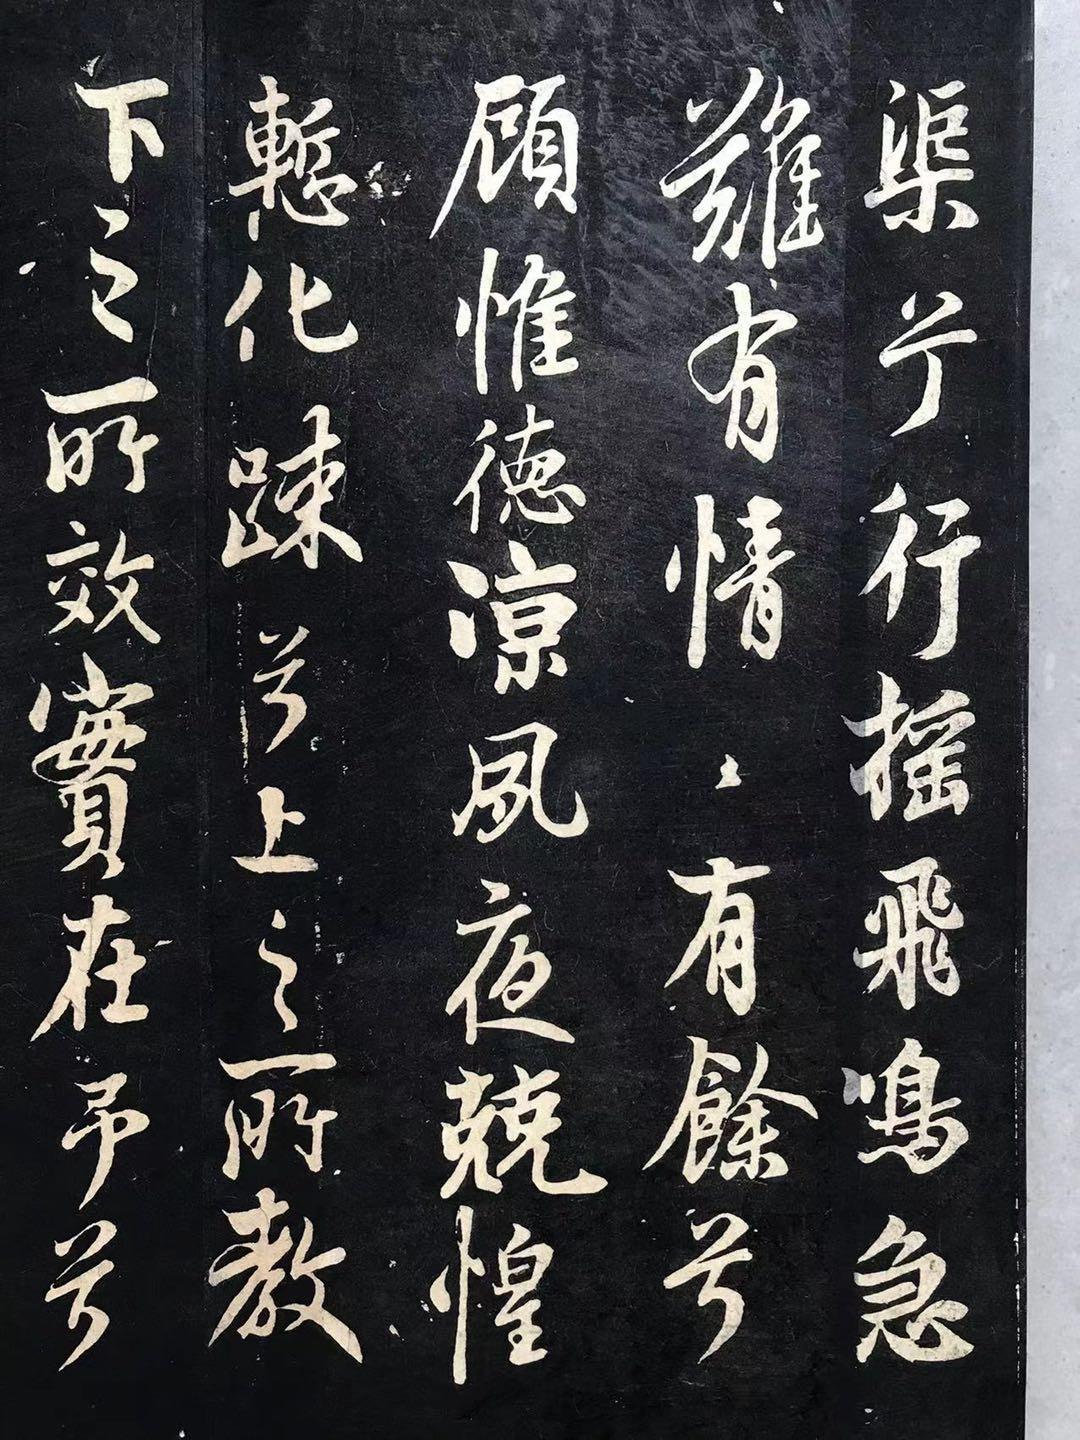 渠兮行摇飛鳴急
難有情〻有餘兮
顧惟德涼夙夜兢惶
慙化踈兮上之所教
下之所效實在予兮